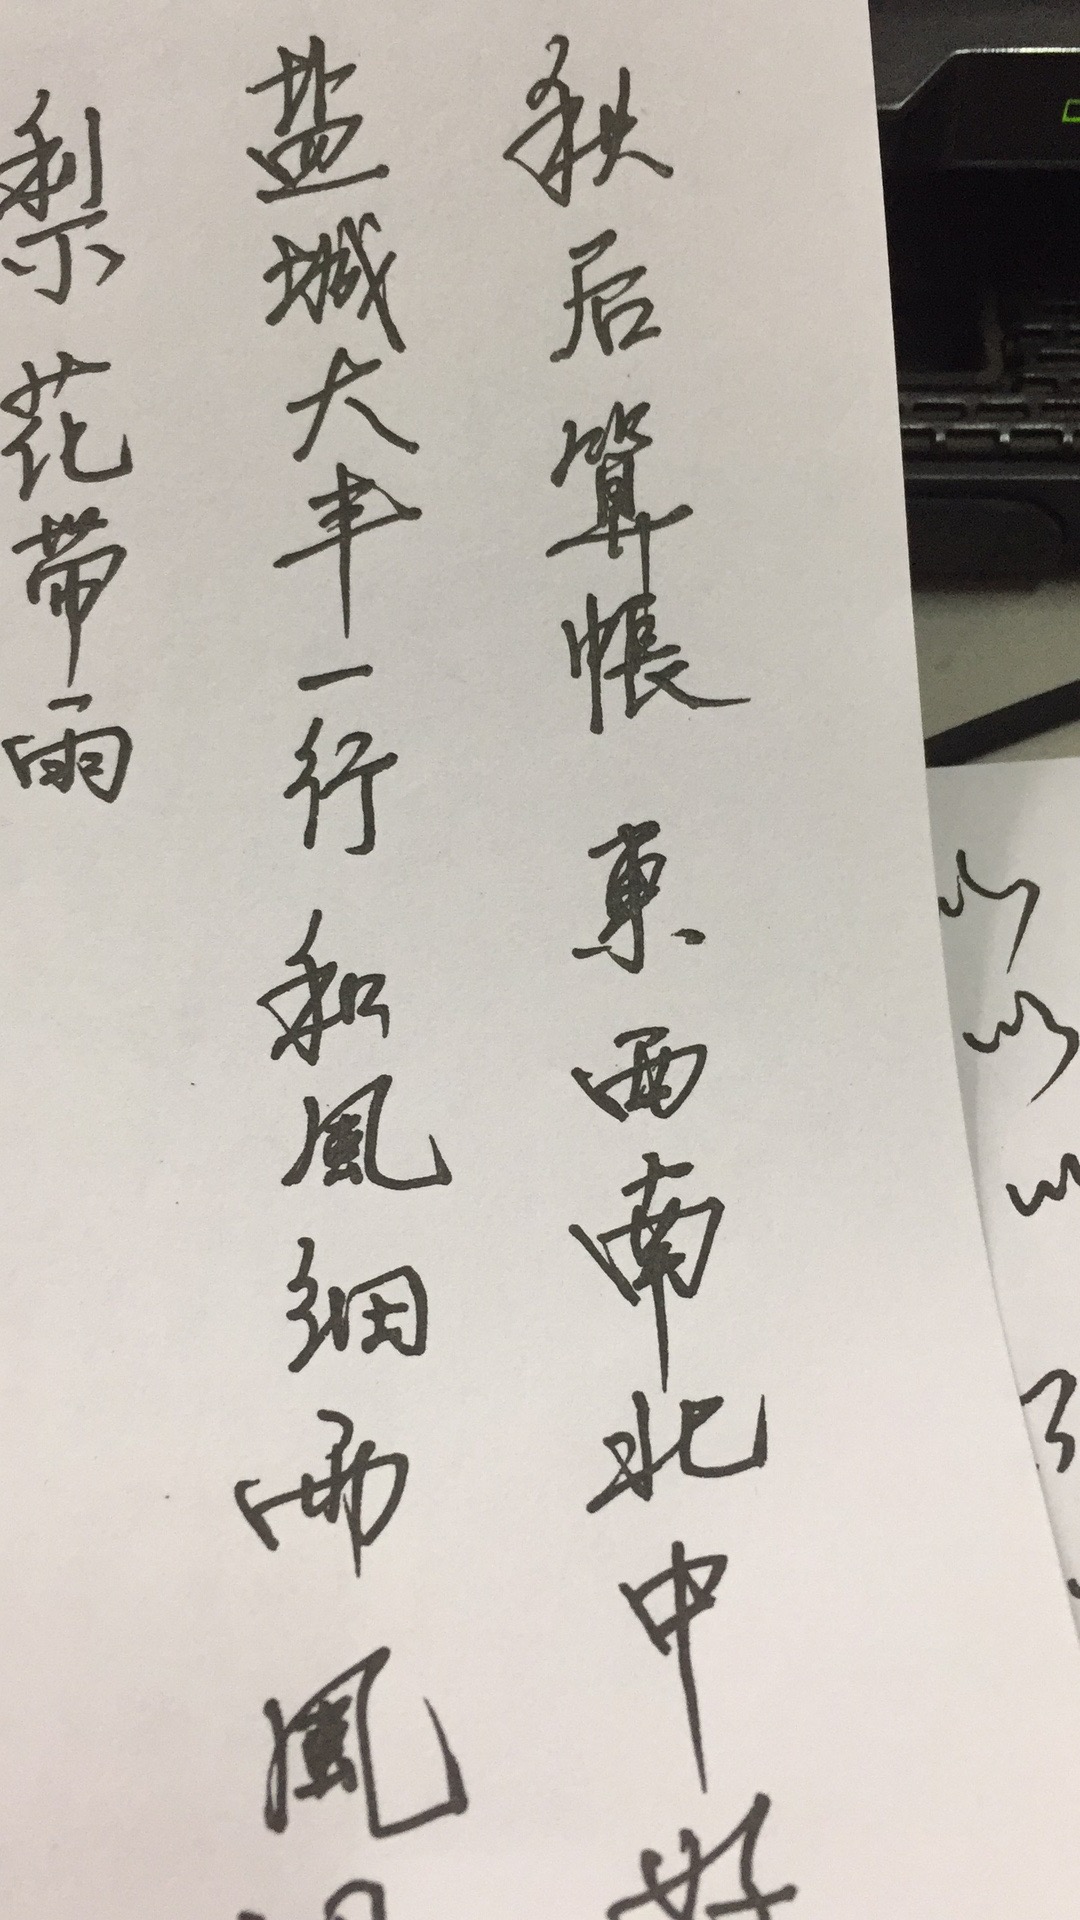 秋后算帳 東西南北中 好
盐城大丰一行 和風細雨 風
梨花带雨